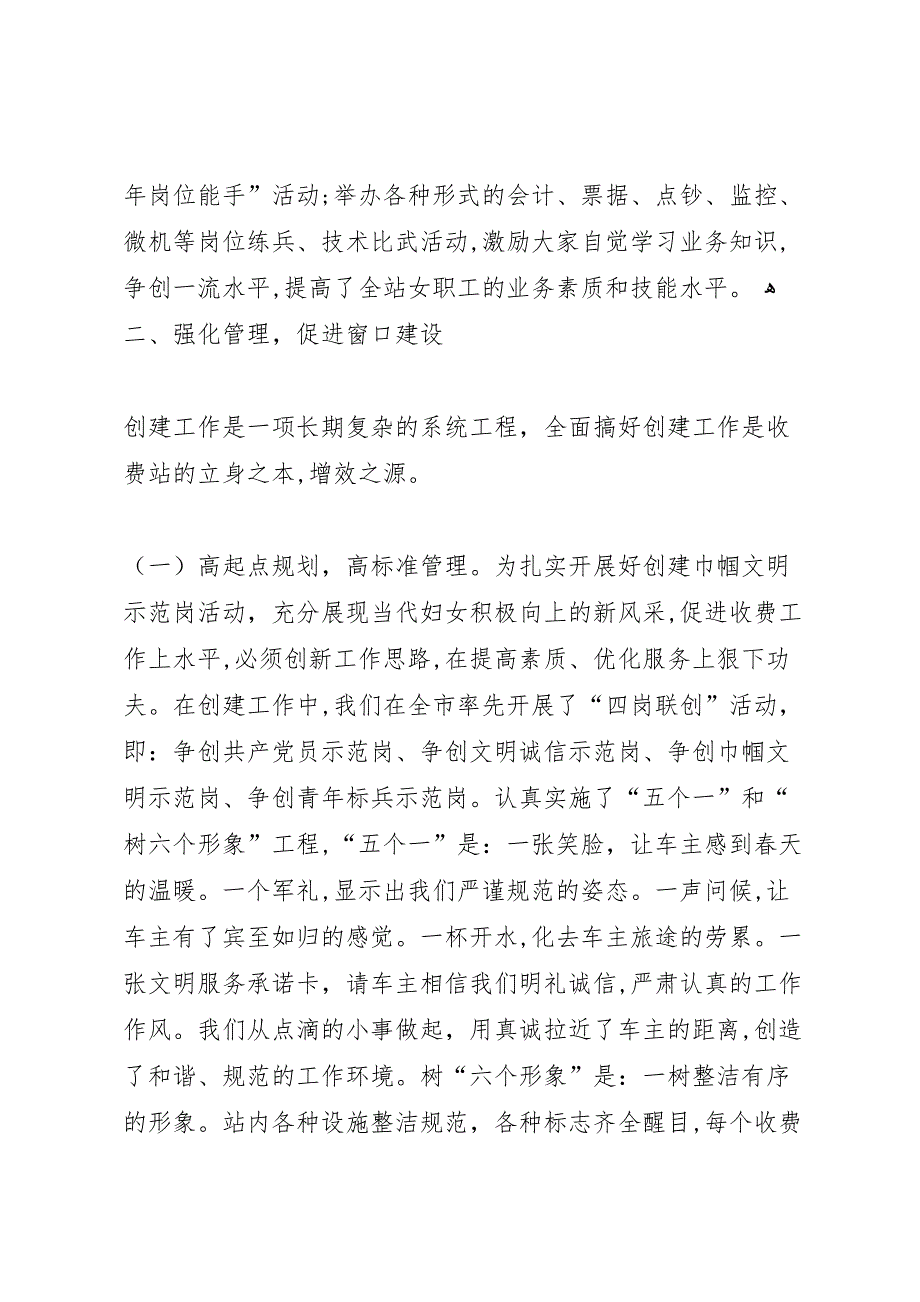 年岗位能手”活动;举办各种形式的会计、票据、点钞、监控、
微机等岗位练兵、技术比武活动,激励大家自觉学习业务知识,
争创一流水平,提高了全站女职工的业务素质和技能水平。 ﻫ
二、强化管理，促进窗口建设
创建工作是一项长期复杂的系统工程，全面搞好创建工作是收
费站的立身之本,增效之源。
（一）高起点规划，高标准管理。为扎实开展好创建巾帼文明
示范岗活动，充分展现当代妇女积极向上的新风采,促进收费工
作上水平,必须创新工作思路,在提高素质、优化服务上狠下功
夫。在创建工作中,我们在全市率先开展了“四岗联创”活动，
即：争创共产党员示范岗、争创文明诚信示范岗、争创巾帼文
明示范岗、争创青年标兵示范岗。认真实施了“五个一”和“
树六个形象”工程,“五个一”是：一张笑脸，让车主感到春天
的温暖。一个军礼,显示出我们严谨规范的姿态。一声问候,让
车主有了宾至如归的感觉。一杯开水,化去车主旅途的劳累。一
张文明服务承诺卡，请车主相信我们明礼诚信,严肃认真的工作
作风。我们从点滴的小事做起，用真诚拉近了车主的距离,创造
了和谐、规范的工作环境。树“六个形象”是：一树整洁有序
的形象。站内各种设施整洁规范，各种标志齐全醒目,每个收费